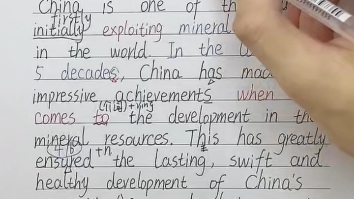 China is one of th
firstly
initially exploiting mineral
in the world. In the
5 decades, China has mad
impressive achievements when
comes to the development in th
mineral resources. This has greatly
ensured the lasting, swift and
healthy development of China's